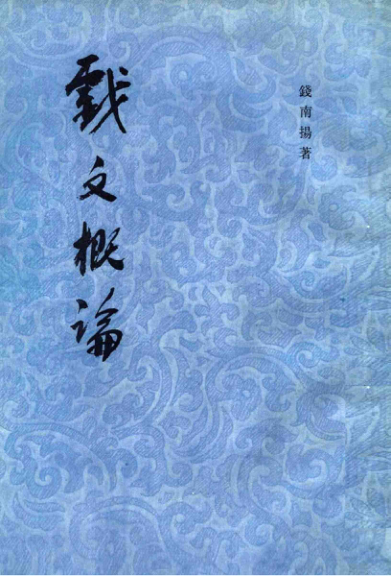 錢南揚著
戲文概論